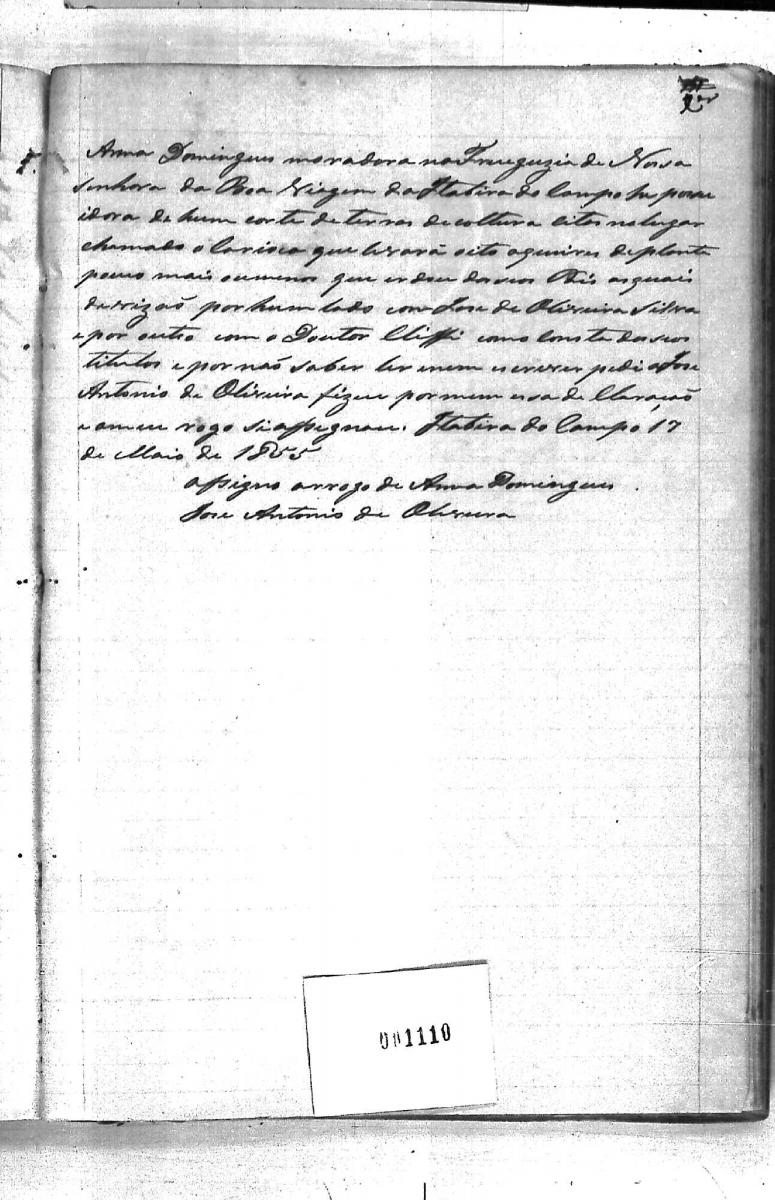 Anna Domingues moradora na Frueguzia de Nossa
senhora da Boa Viagem da Itabira do Campo he posu
idora de hum corte de terras de coltura citos no lugar
chamado o que levará oito alqueires de planta
pouco mais ou menos que erdou dos seos Pais as quais
devizaõ por hum lado com Jose de Oliveira Silva
e por outro com o Doutor como consta dos seos
titulos e por naõ saber ler e nem escrever pedi a Jose
Antonio de Oliveira fizeu por mem essa de Claraçaõ
e a meu rogo si assegnau. Itabira do Campo 17
de Maio de 1855
assigno a rrogo de Anna Domingues
Jose Antonio de Oliveira
001110